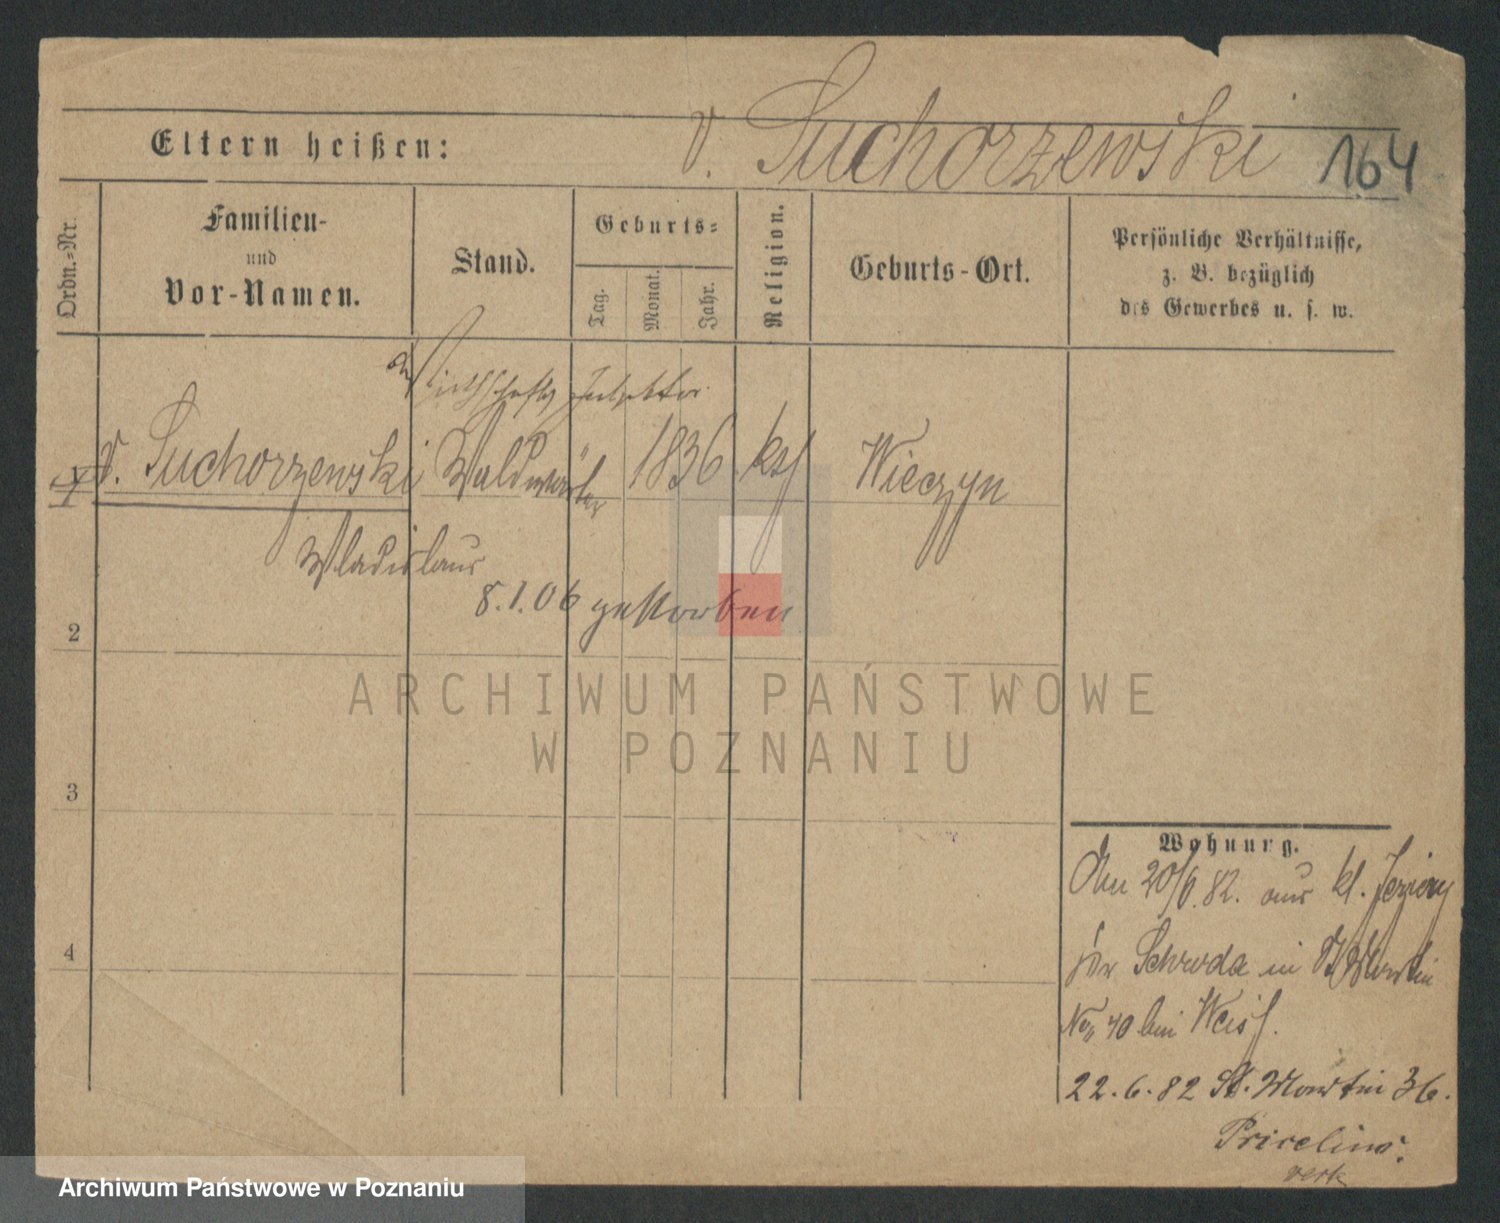 v. Suchorzewski 164
Eltern heißen:
Ordn.-Nr.
Familien-
und
Vor-Namen.
Stand.
Geburts-
Tag.
Monat.
Jahr.
Religion.
Geburts-Ort.
Persönliche Verhältnisse,
z. B. bezüglich
des Gewerbes u. s. w.
v. Suchorzewski Waldwärter 1836 kth Wieczyn
Wladislaus
8.1.06 gestorben
2
3
4
Wohnung.
Am 20/6.82. aus kl. Jeziory
Schroda in St Martin
No 40 bei Weiss.
22.6.82 St. Martin 36.
ARCHIWUM PAŃSTWOWE
W POZNANIU
Archiwum Państwowe w Poznaniu